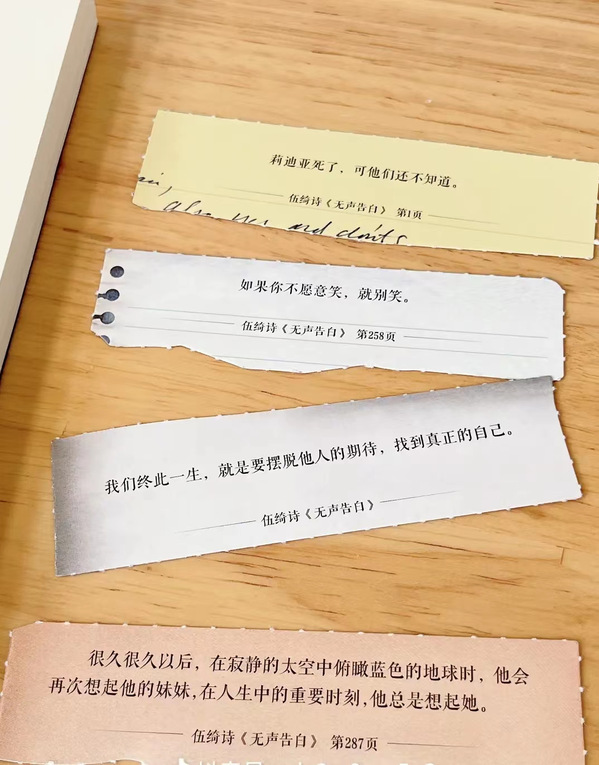 莉迪亚死了，可他们还不知道。
伍绮诗《无声告白》 第1页
also yes and don'ts
如果你不愿意笑，就别笑。
伍绮诗《无声告白》 第258页
我们终此一生，就是要摆脱他人的期待，找到真正的自己。
伍绮诗《无声告白》
很久很久以后，在寂静的太空中俯瞰蓝色的地球时，他会
再次想起他的妹妹，在人生中的重要时刻，他总是想起她。
伍绮诗《无声告白》 第287页